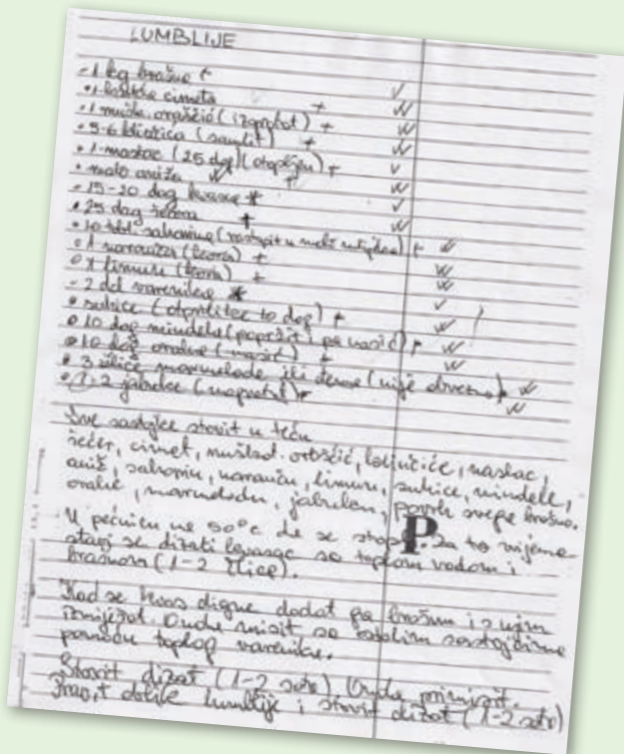 LUMBLIJE
- 1 kg brašna +
• 1 cimeta +
• 1 mušk. oraščić (izgrotat) +
• 5-6 klinčića (samlit) +
• 1 mastac (25 dag) (otopljen) +
• malo aniža +
• 15-20 dag kvasa +
• 25 dag šećera +
• 10 tbl. saharina (rastopit u malo) +
• 1 naranča (kora) +
• 1 limun (kora) +
- 2 dcl varenike
• suhice (otprilike 10 dag) +
• 10 dag mindela (popržit i pa nasić) +
• 10 dag oraha (nasić) +
• 3 žlice marmelade ili džema (nije obvezno) +
• 1-2 jabuke (naprotat) +
Sve sastojke stavit u teću
šećer, cimet, muškad. oraščić, klinčiće, mastac,
aniž, saharin, naranču, limun, suhice, mindele,
orahe, marmeladu, jabuku, povrh svega brašno.
U pećnicu na 50°C da se stopi. Za to vrijeme
stavi se dizati kvasac sa toplom vodom i
brašnom (1-2 žlice).
Kad se kvas digne dodat ga brašnu i s njim
izmiješat. Onda misit sa ostalim sastojcima
pomoću toplog varenika.
Stavit dizat (1-2 sata). Onda primisit.
Pravit oblike lumblije i stavit dizat (1-2 sata)
P